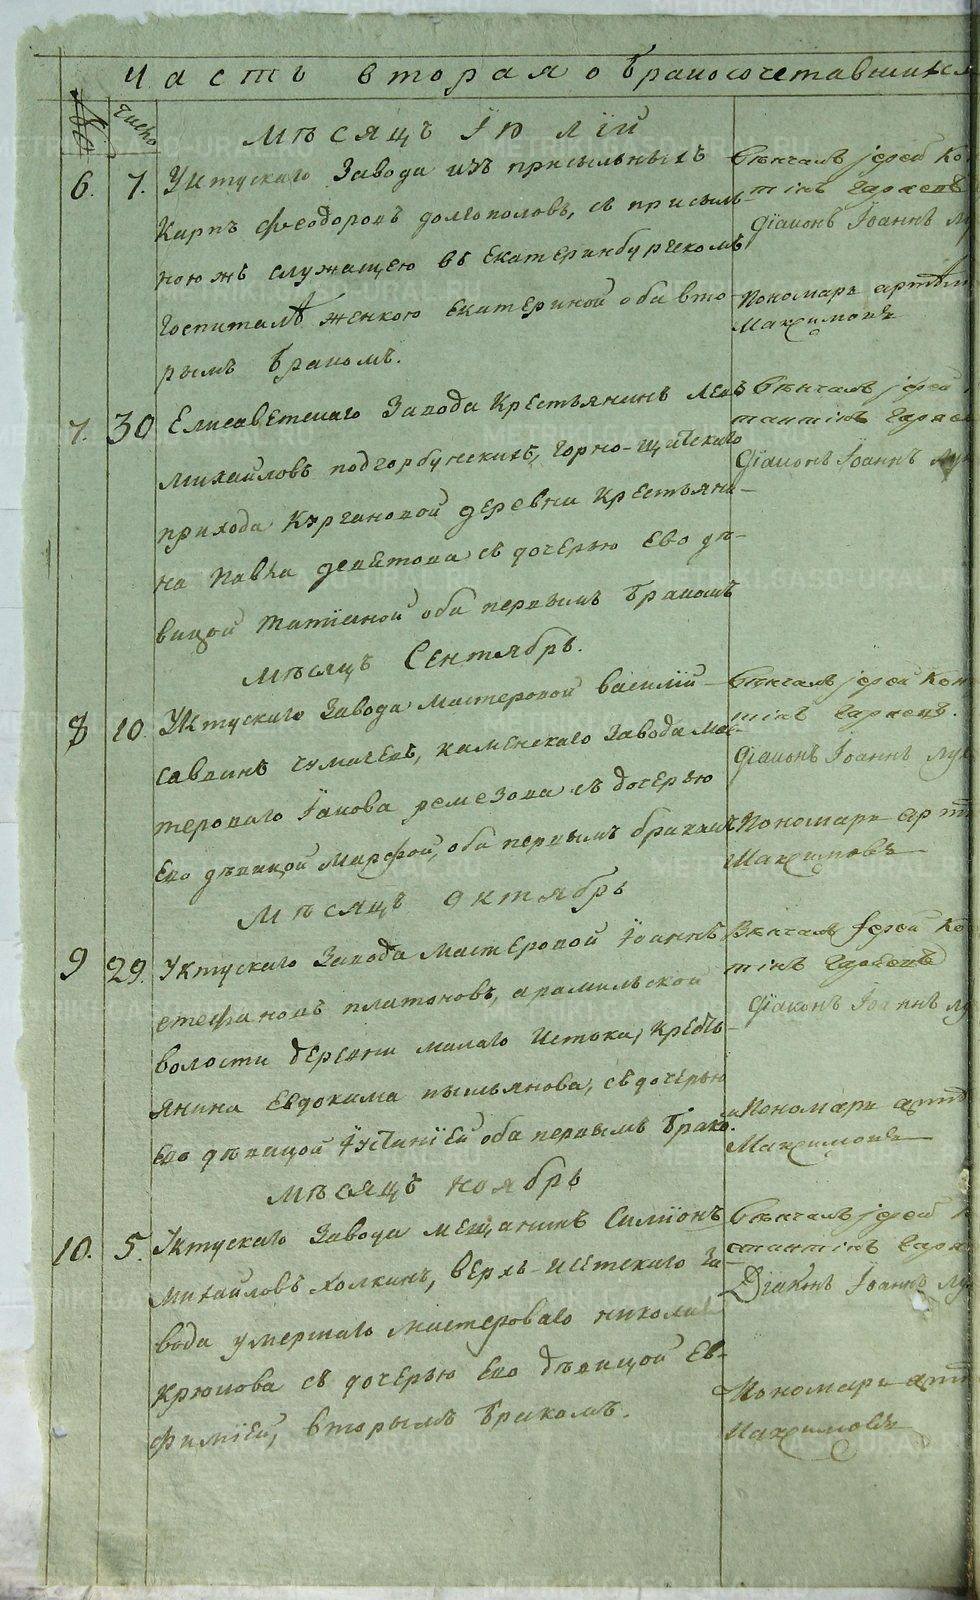 Часть вторая о бракосочетавшихся
№
число
Мѣсяцъ Їюлїй
6. 7. Уктускаго Завода изъ присыльныхъ
Карпъ Феодоровъ долгополовъ, съ присыль-
ною жъ служащею въ Екатеринбургскомъ
госпиталѣ женкою Екатериной оба вто-
рымъ бракомъ.
Вѣнчалъ іерей Ко
тинъ
Дїаконъ Їоаннъ
Пономарь арте
Максимовъ
7. 30 Елисаветскаго Завода Крестьянинъ
Михайловъ подгорбунскихъ, Горно-щитскаго
прихода Кургановой деревни Крестьяни-
на Павла девятова съ дочерью Ево дѣ-
вицой Татїаной оба первымъ бракомъ
Вѣнчалъ іерей
стантинъ
Дїаконъ Їоаннъ лу
Мѣсяцъ Сентябрь.
8 10. Уктускаго Завода мастеровой василїй
савинъ чумачевъ, каменскаго Завода мас-
тероваго Їакова ремезова съ дочерью
Ево дѣвицой Марфой, оба первымъ бракомъ
Вѣнчалъ іерей Кон
тинъ
Дїаконъ Їоаннъ лу
Пономарь арт
Максимовъ
Мѣсяцъ Октябрь
9 29. Уктускаго Завода мастеровой Їоаннъ
стефановъ платоновъ, арамильской
волости деревни малаго Истока, Кресть-
янина Евдокима пильянова, съ дочерью
Ево дѣвицой Їустинїей оба первымъ брако.
Вѣнчалъ іерей Ко
тинъ
Дїаконъ Їоаннъ лу
Пономарь арте
Максимовъ
Мѣсяцъ ноябрь
10. 5. Уктускаго Завода мещанинъ Симїонъ
Михайловъ Холкинъ, верхъ-исетскаго За-
вода умершаго мастероваго николая
крюкова съ дочерью Ево дѣвицой Ев-
фимїей, вторымъ бракомъ.
Вѣнчалъ іерей
стантинъ
Дїаконъ Їоаннъ лу
Пономарь арт
Максимовъ